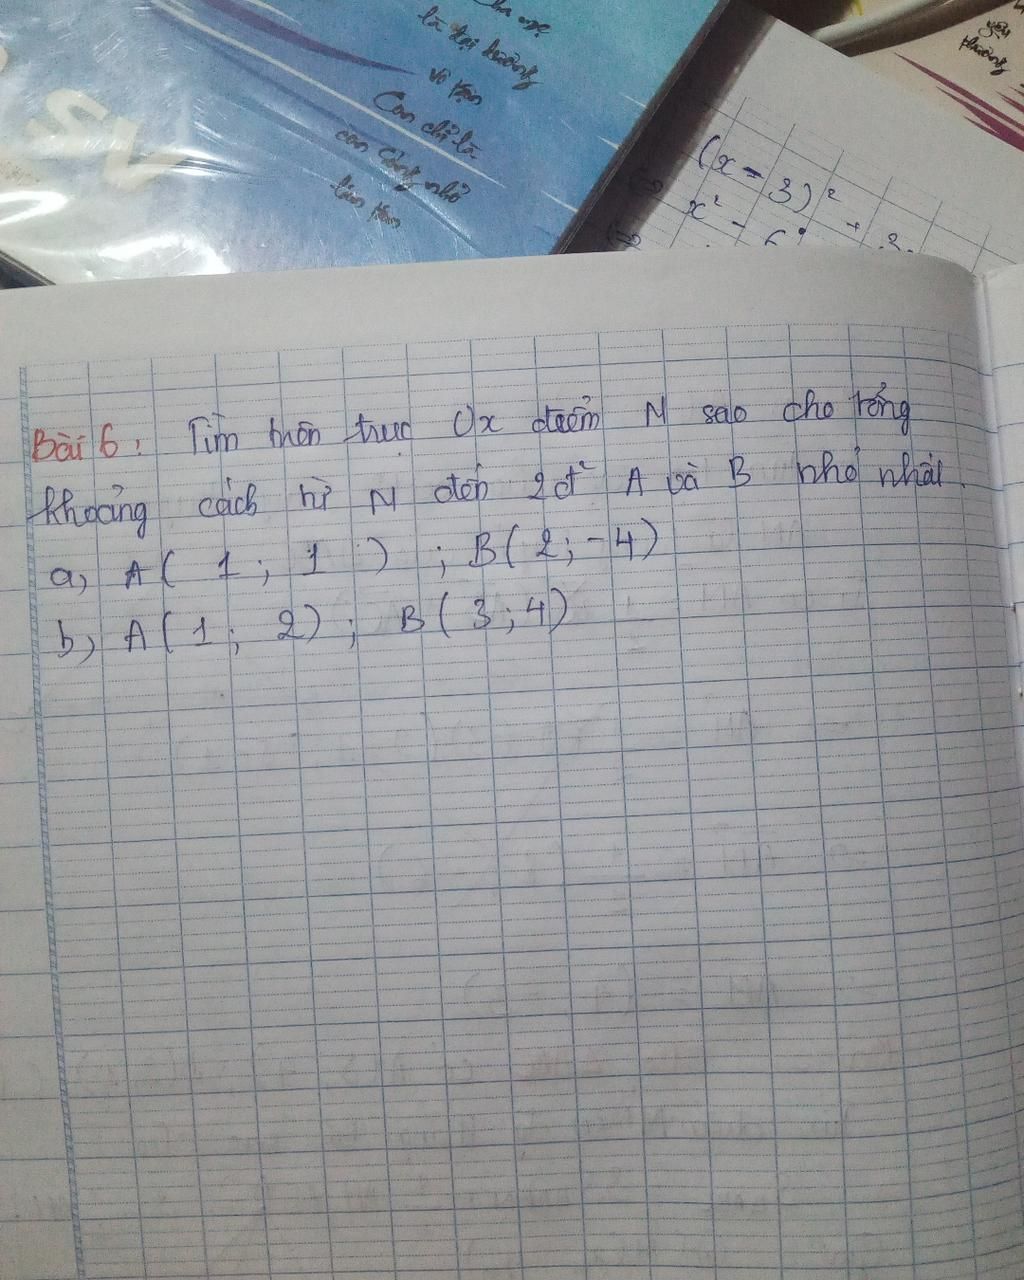 Cha mẹ
là đại dương
vô tận
Con chỉ là
con sóng nhỏ
lăn tăn
yêu
thương
(x - 3)²
x² - 6
Bài 6: Tìm trên trục Ox điểm N sao cho tổng
khoảng cách từ N đến 2đ² A và B nhỏ nhất.
a, A( 1 ; 1 ) ; B( 2; -4)
b, A( 1 ; 2) ; B( 3 ; 4)